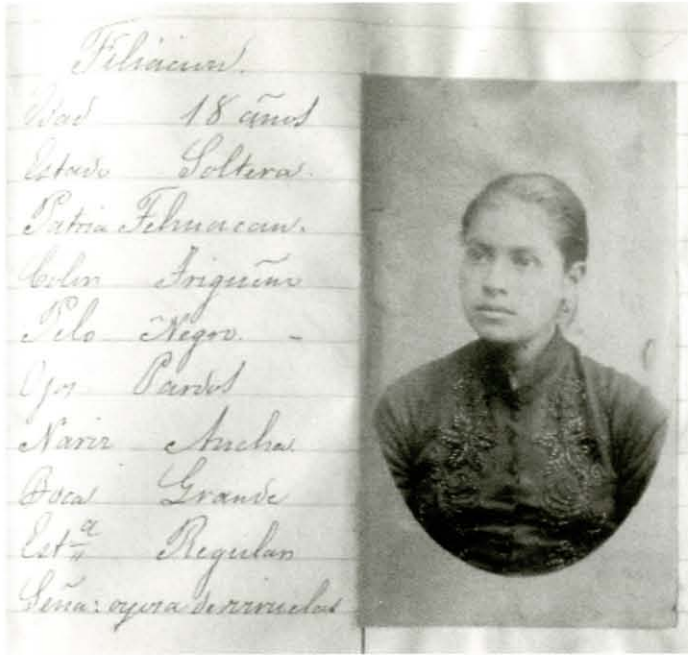 Filiacion.
Edad 18 años
Estado Soltera.
Patria Tehuacan.
Color Trigueño
Pelo Negro. -
Ojos Pardos
Nariz Ancha.
Boca Grande
Est.ª Regular
Seña: oyosa de viruelas